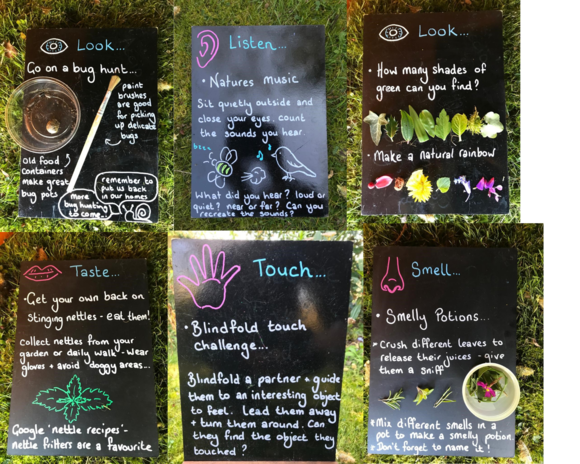 Look...
Go on a bug hunt...
paint
brushes
are good
for picking
up delicate
bugs
old food
containers
make great
bug pots
more
bug hunting
to come..
remember to
put us back
in our homes
Listen...
• Natures music
Sit quietly outside and
close your eyes. count
the sounds you hear
bzzz
What did you hear? loud or
quiet? near or far? Can you
recreate the sounds?
Look...
• How many shades of
green can you find?
• Make a natural rainbow
Taste...
• Get your own back on
Stinging nettles - eat them!
Collect nettles from your
garden or daily walk - wear
gloves + avoid doggy areas...
Google 'nettle recipes' -
nettle fritters are a favourite
Touch...
• Blindfold touch
challenge...
Blindfold a partner + guide
them to an interesting object
to feel. Lead them away
+ turn them around. Can
they find the object they
touched?
Smell...
• Smelly Potions...
Crush different leaves to
release their juices - give
them a sniff
Mix different smells in a
pot to make a smelly potion
Don't forget to name it!